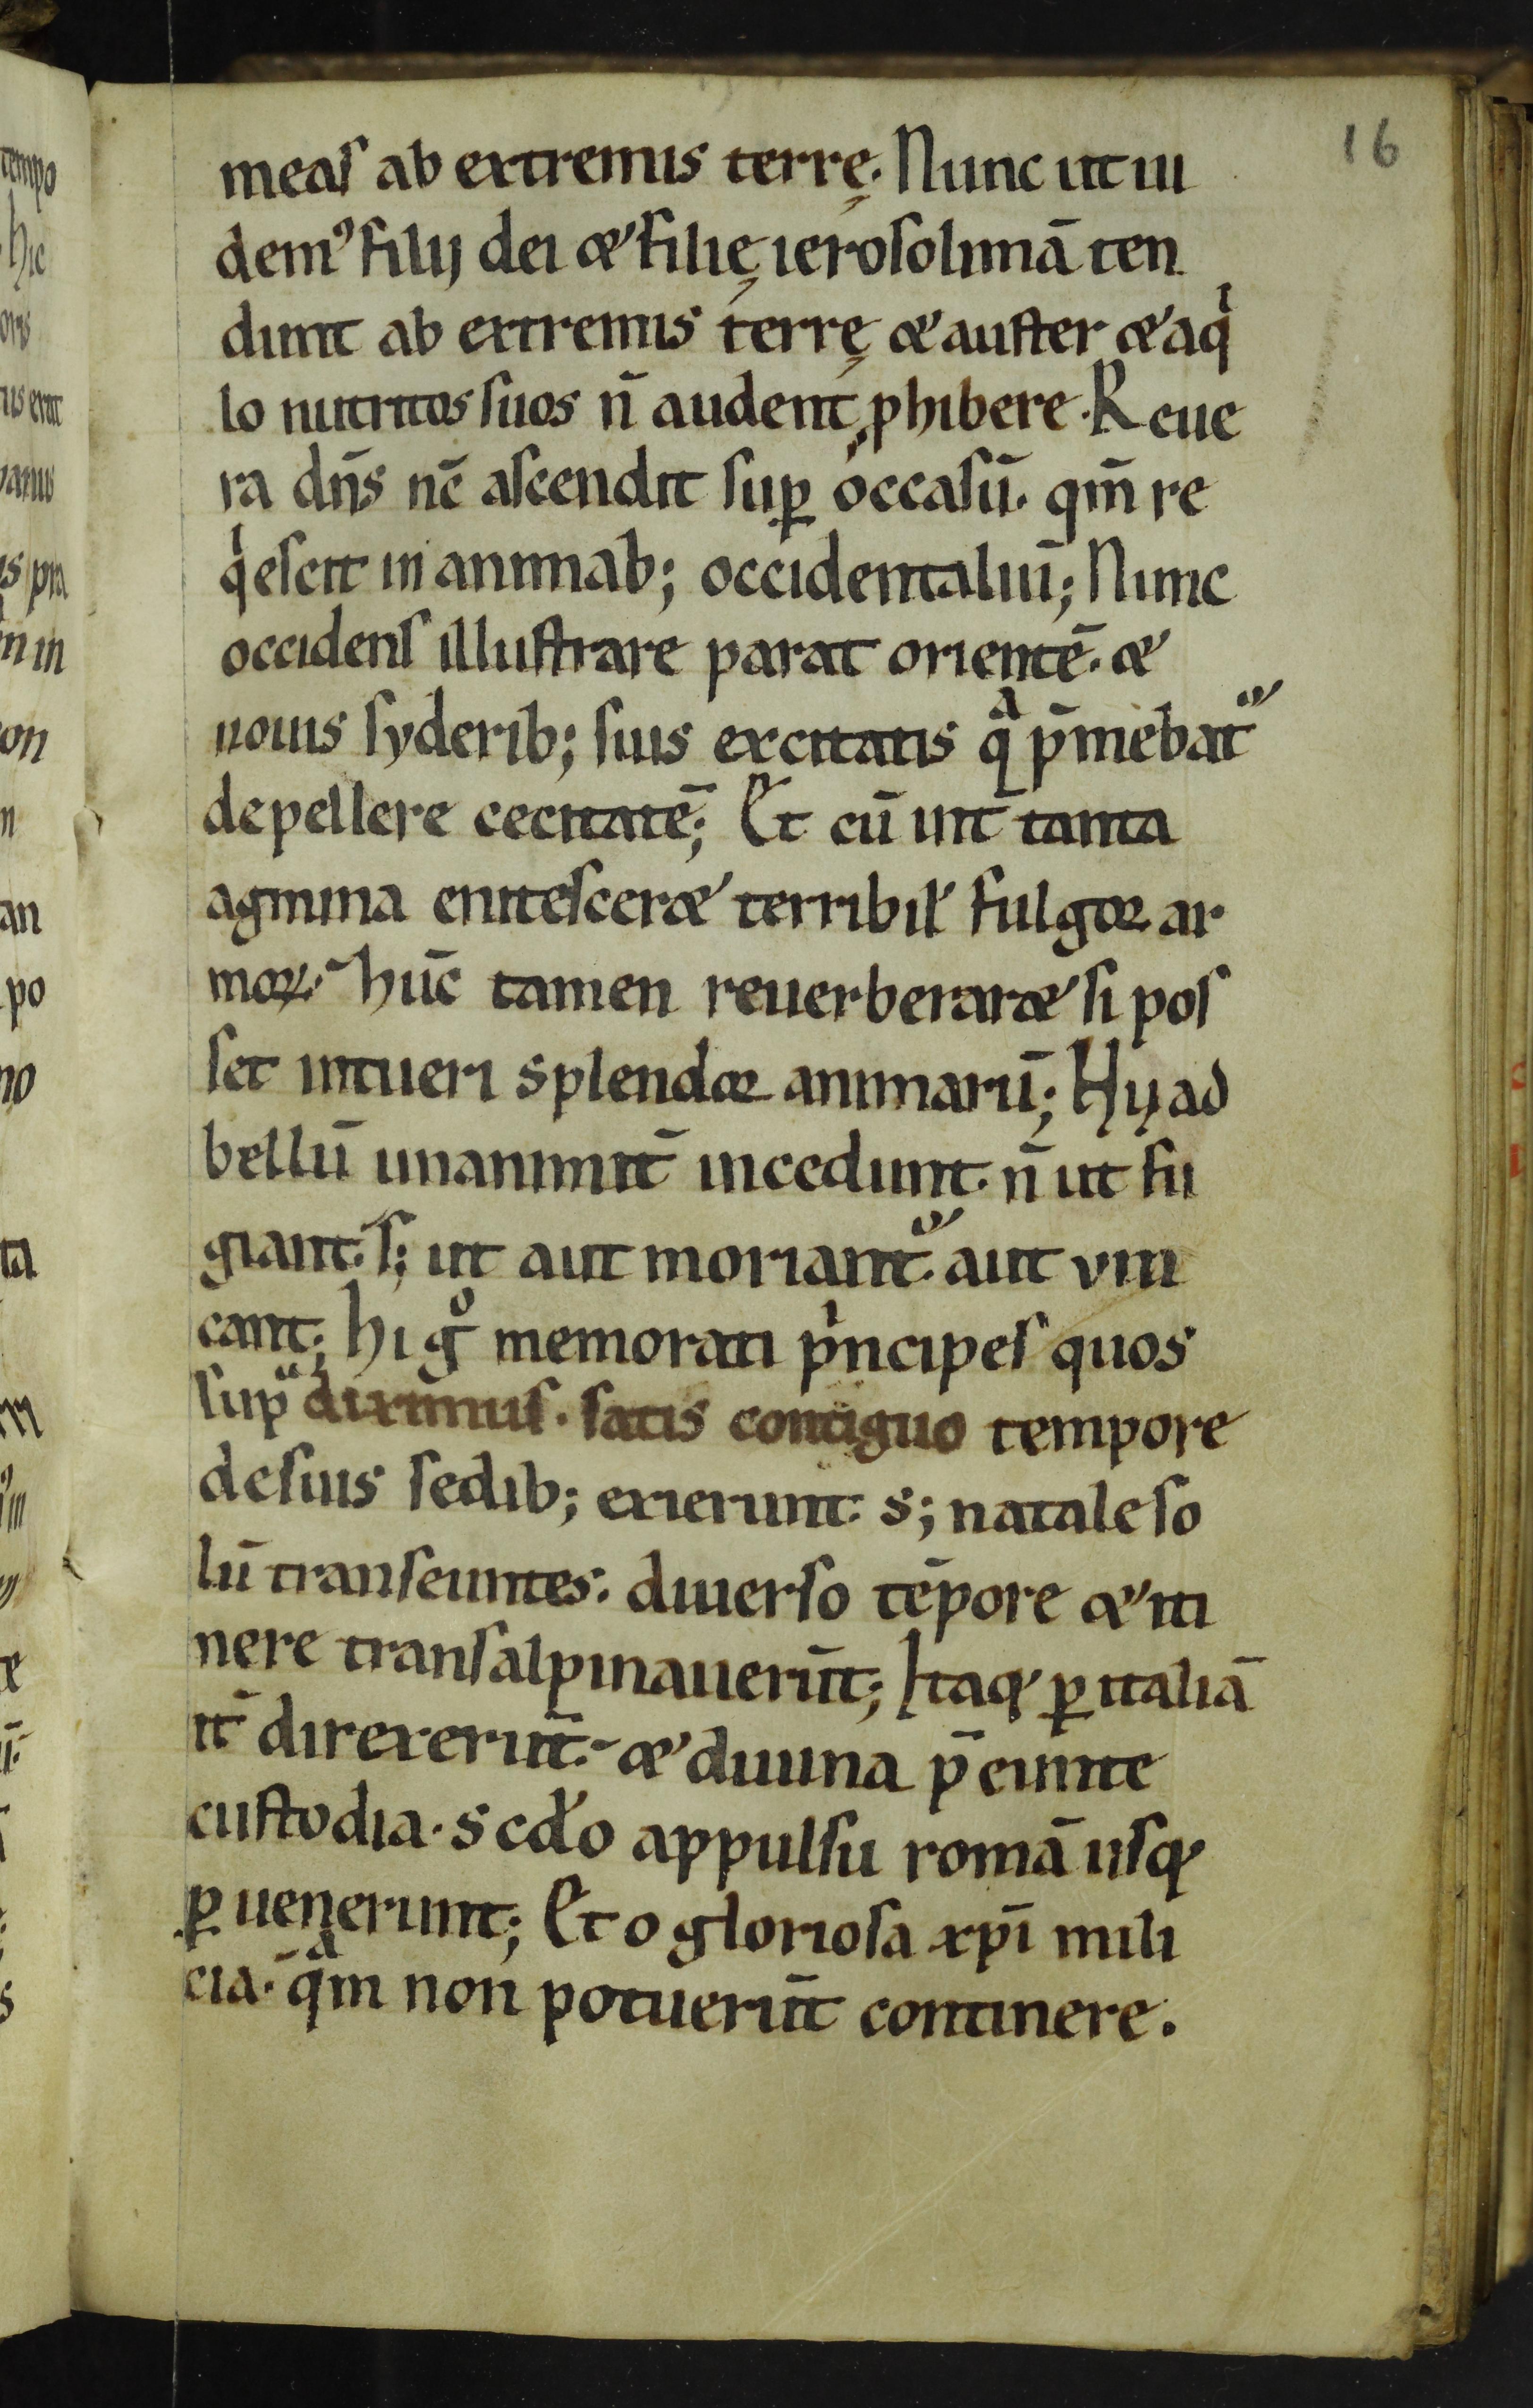 16
meaſ ab extremis terrę. Nunc ut ui
demꝰ filij dei & filię ieroſolimā ten
dunt ab extremis terrę & auſter & aqͥ
lo nutritos ſuos n̄ audent ꝓhibere. Reue
ra dn̄s nc̄ aſcendit ſuꝑ occaſū. qm̄ re
qͥeſcit in animab; occidentaliū; Nunc
occidenſ illuſtrare parat orientē. &
nouis ſyderib; ſuis excitatis qͣ p̄mebat᷑
depellere cecitatē; Et cū int̄ tanta
agmina eniteſcer& terribil̕ fulgor ar
moꝝ. hūc tamen reuerberar& ſi poſ
ſet intueri splendor animarū; Hij ad
bellū unanimit̄ incedunt. n̄ ut fu
giant. ſ; ut aut moriant᷑. aut vin
cant; hi gͦ memorati pͥncipeſ quos
ſupͣ diximuſ. ſatis contiguo tempore
de ſuis ſedib; exierunt. s; natale ſo
lū tranſeuntes. diuerſo tēpore & iti
nere tranſalpinauerūt; Itaq; ꝑ italiā
it̄ direxerūt. & diuina p̄eunte
cuſtodia. scd̕o appulſu romā uſq;
ꝑuenerunt; Et o glorioſa xpī mili
cia. qͣm non potuerūt continere.
tempo
hic
oris
us erat
n in
on
n
an
po
no
ta